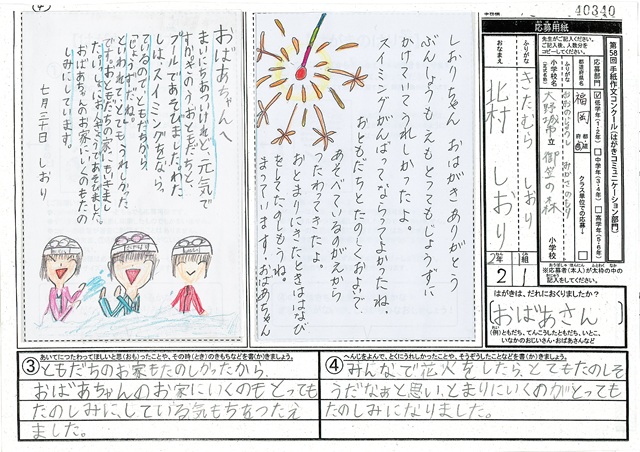 40340
応募用紙
第58回 手紙作文コンクール(はがきコミュニケーション部門)
先生がご記入ください。
ご記入後、人数分を
コピーしてください。
応募部門
低学年(1・2年)
中学年(3・4年)
高学年(5・6年)
都道府県名
福岡
クラス単位での応募
小学校名
ふりがな
おおのじょうしりつ みかさのもり
大野城市立 御笠の森
小学校
ふりがな
きたむら しおり
おなまえ
北村 しおり
2年
2
組
1
※応募者(本人)が太枠の中の
記入をしてください。
はがきは、だれにおくりましたか?
おばあさん
(例)ともだち、てんこうしたともだち、いとこ、
いなかのおじいさん・おばあさんなど
しおりちゃん おはがきありがとう
ぶんしょうもえもとってもじょうずに
かけていてうれしかったよ。
スイミングがんばってならってよかったね。
おともだちとたのしくおよいで
あそべているのがえから
つたわってきたよ
おとまりにきたときははなび
をしてたのしもうね。
まっています。おばあちゃん
おばあちゃんへ
まいにちあついけれど、元気で
すか。きのう、おともだちと、
プールであそびました。わた
しは、スイミングをなら
っているので、ともだちから、
「じょうずだね。」
といわれて、とてもうれしかった
です。おともだちの家にも、いきまし
た。いっしょにおにんぎょうであそびました。
おばあちゃんのお家にいくのもたの
しみにしています。
七月三十日 しおり
③あいてにつたわってほしいと思(おも)ったことや、その時(とき)のきもちなどを書(か)きましょう。
ともだちのお家もたのしかったから、
おばあちゃんのお家にいくのもとっても
たのしみに、している気もちをつたえ
ました。
④へんじをよんで、とくにうれしかったことや、そうぞうしたことなどを書(か)きましょう。
みんなで花火をしたら、とてもたのしそ
うだなあと思い、とまりにいくのがとっても
たのしみになりました。